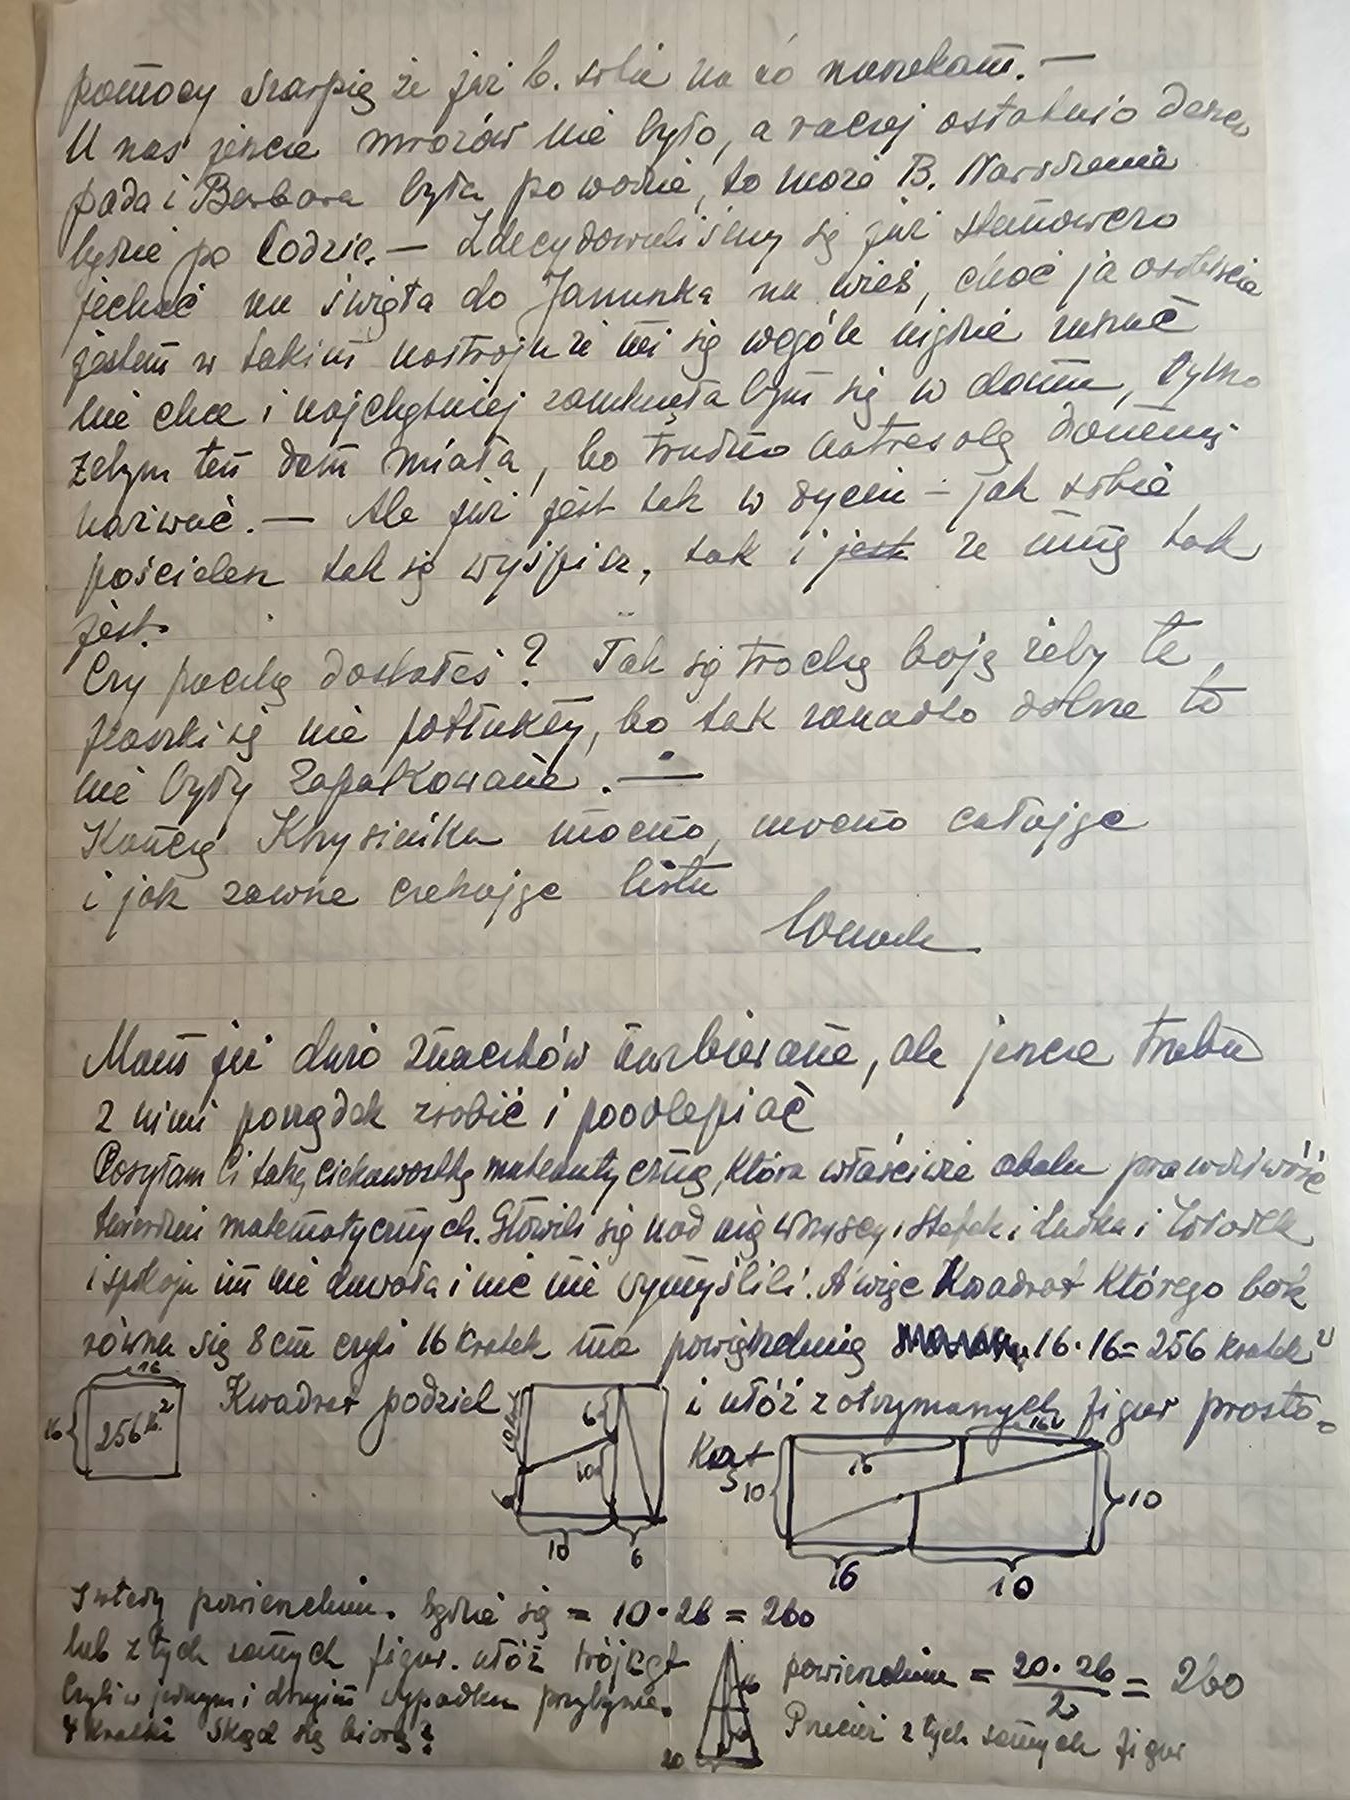 pomocy szarpię że już b. sobie na to narzekam. —
U nas jeszcze mrozów nie było, a raczej ostatnio deszcz
pada i Barbara była po wodzie, to może B. Narodzenie
będzie po lodzie. — Zdecydowaliśmy się już stanowczo
jechać na święta do Janunka na wieś, choć ja osobiście
jestem w takim nastroju że mi się wogóle nigdzie ruszać
nie chce i najchętniej zamknęła bym się w domu, tylko
żebym ten dom miała, bo trudno antresolę domem
nazwać. — Ale już jest tak w życiu – jak sobie
pościelesz tak się wyśpisz, tak i jest ze mną tak
jest.
Czy paczkę dostałeś? Tak się trochę boję żeby te
flaszki się nie potłukły, bo tak zanadto dobrze to
nie były zapakowane. —
Kończę Krysieńku mocno, mocno całując
i jak zawsze czekając listu
Mam już dużo znaczków nazbierane, ale jeszcze trzeba
z nimi porządek zrobić i poodlepiać
Posyłam Ci taką ciekawostkę matematyczną, która właściwie obala prawdziwość
twierdzeń matematycznych. Głowili się nad nią wszyscy i Stefek i Lutka i
i spokoju im nie dawała i nic nie wymyślili. A więc Kwadrat którego bok
równa się 8 cm czyli 16 kratek ma powierzchnię 16 · 16 = 256 kratek²
16
16 256 k.² Kwadrat podziel 10 6 6 10 10 6 i ułóż z otrzymanych figur prosto=
kąt 10 16 16 10 16 10
I wtedy powierzchnia. będzie się = 10 · 26 = 260
lub z tych samych figur. ułóż trójkąt powierzchnia = 20 · 26 / 2 = 260
Czyli w jednym i drugim wypadku przybywa. Przecież z tych samych figur
4 kratki Skąd się biorą? 20